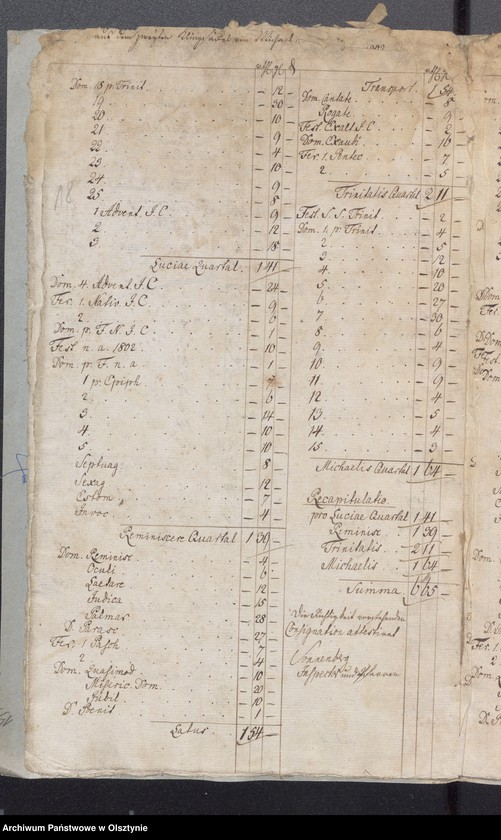 aus dem zweyten Klingsäckel von Michael
Dom. 18 p. Trinit — 12 —
19 — 30 —
20 — 10 —
21
22 — 9 —
23 — 4 —
24 — 10 —
25 — 9 —
— 8 —
1 Advent. J. C. — 9 —
2 — 12 —
3 — 18 —
Luciae Quartal. 1 41 —
Dom. 4. Advent. J. C. — 24 —
Fer. 1. Nativ. J. C. — 9 —
2 — 6 —
Dom. p. F. N. J. C. — 1 —
Fest. n. a. 1802. — 10 —
Dom. p. F. n. a. — 1 —
1 p. Epiph.
2. — 6 —
3. — 14 —
4. — 10 —
5. — 10 —
Septuag — 8 —
Sexag — 12 —
Estom. — 7 —
Invoc. — 4 —
Reminiscere Quartal 1 39 —
Dom. Reminisc — 4 —
Oculi — 6 —
Laetare — 12 —
Judica — 15 —
Palmar — 28 —
D. Parasc. — 27 —
Fer. 1 Pasch — 7 —
2 — 4 —
Dom. Quasimod — 10 —
Miseric. Dom. — 20 —
Jubil — 10 —
— 1 —
Latus. 1 54 —
Transport. 1 54 —
Dom. Cantate. — 8
Rogate — 9
Fest. Exalt J. C — 2
Dom. Exaudi — 16
Fer. 1. Pentec — 7 —
2. — 5 —
Trinitatis Quartal 2 11 —
Fest. S. S. Trinit. — 2 —
Dom. 1. p. Trinit. — 4 —
2. — 5 —
3. — 12 —
4. — 10 —
5. — 20 —
6. — 27 —
7. — 30 —
8. — 6 —
9. — 4 —
10. — 9 —
11. — 9 —
12. — 4 —
13. — 5 —
14. — 4 —
15. — 3 —
Michaelis Quartal 1 64 —
Recapitulatio.
pro Luciae Quartal 1 41 —
Reminisc 1 39 —
Trinitatis. 2 11 —
Michaelis. 1 64 —
Summa. 6 65 —
Die Richtigkeit vorstehender
Consignation attestirt
Sonnenberg
Inspector und Pfarrer
Archiwum Państwowe w Olsztynie